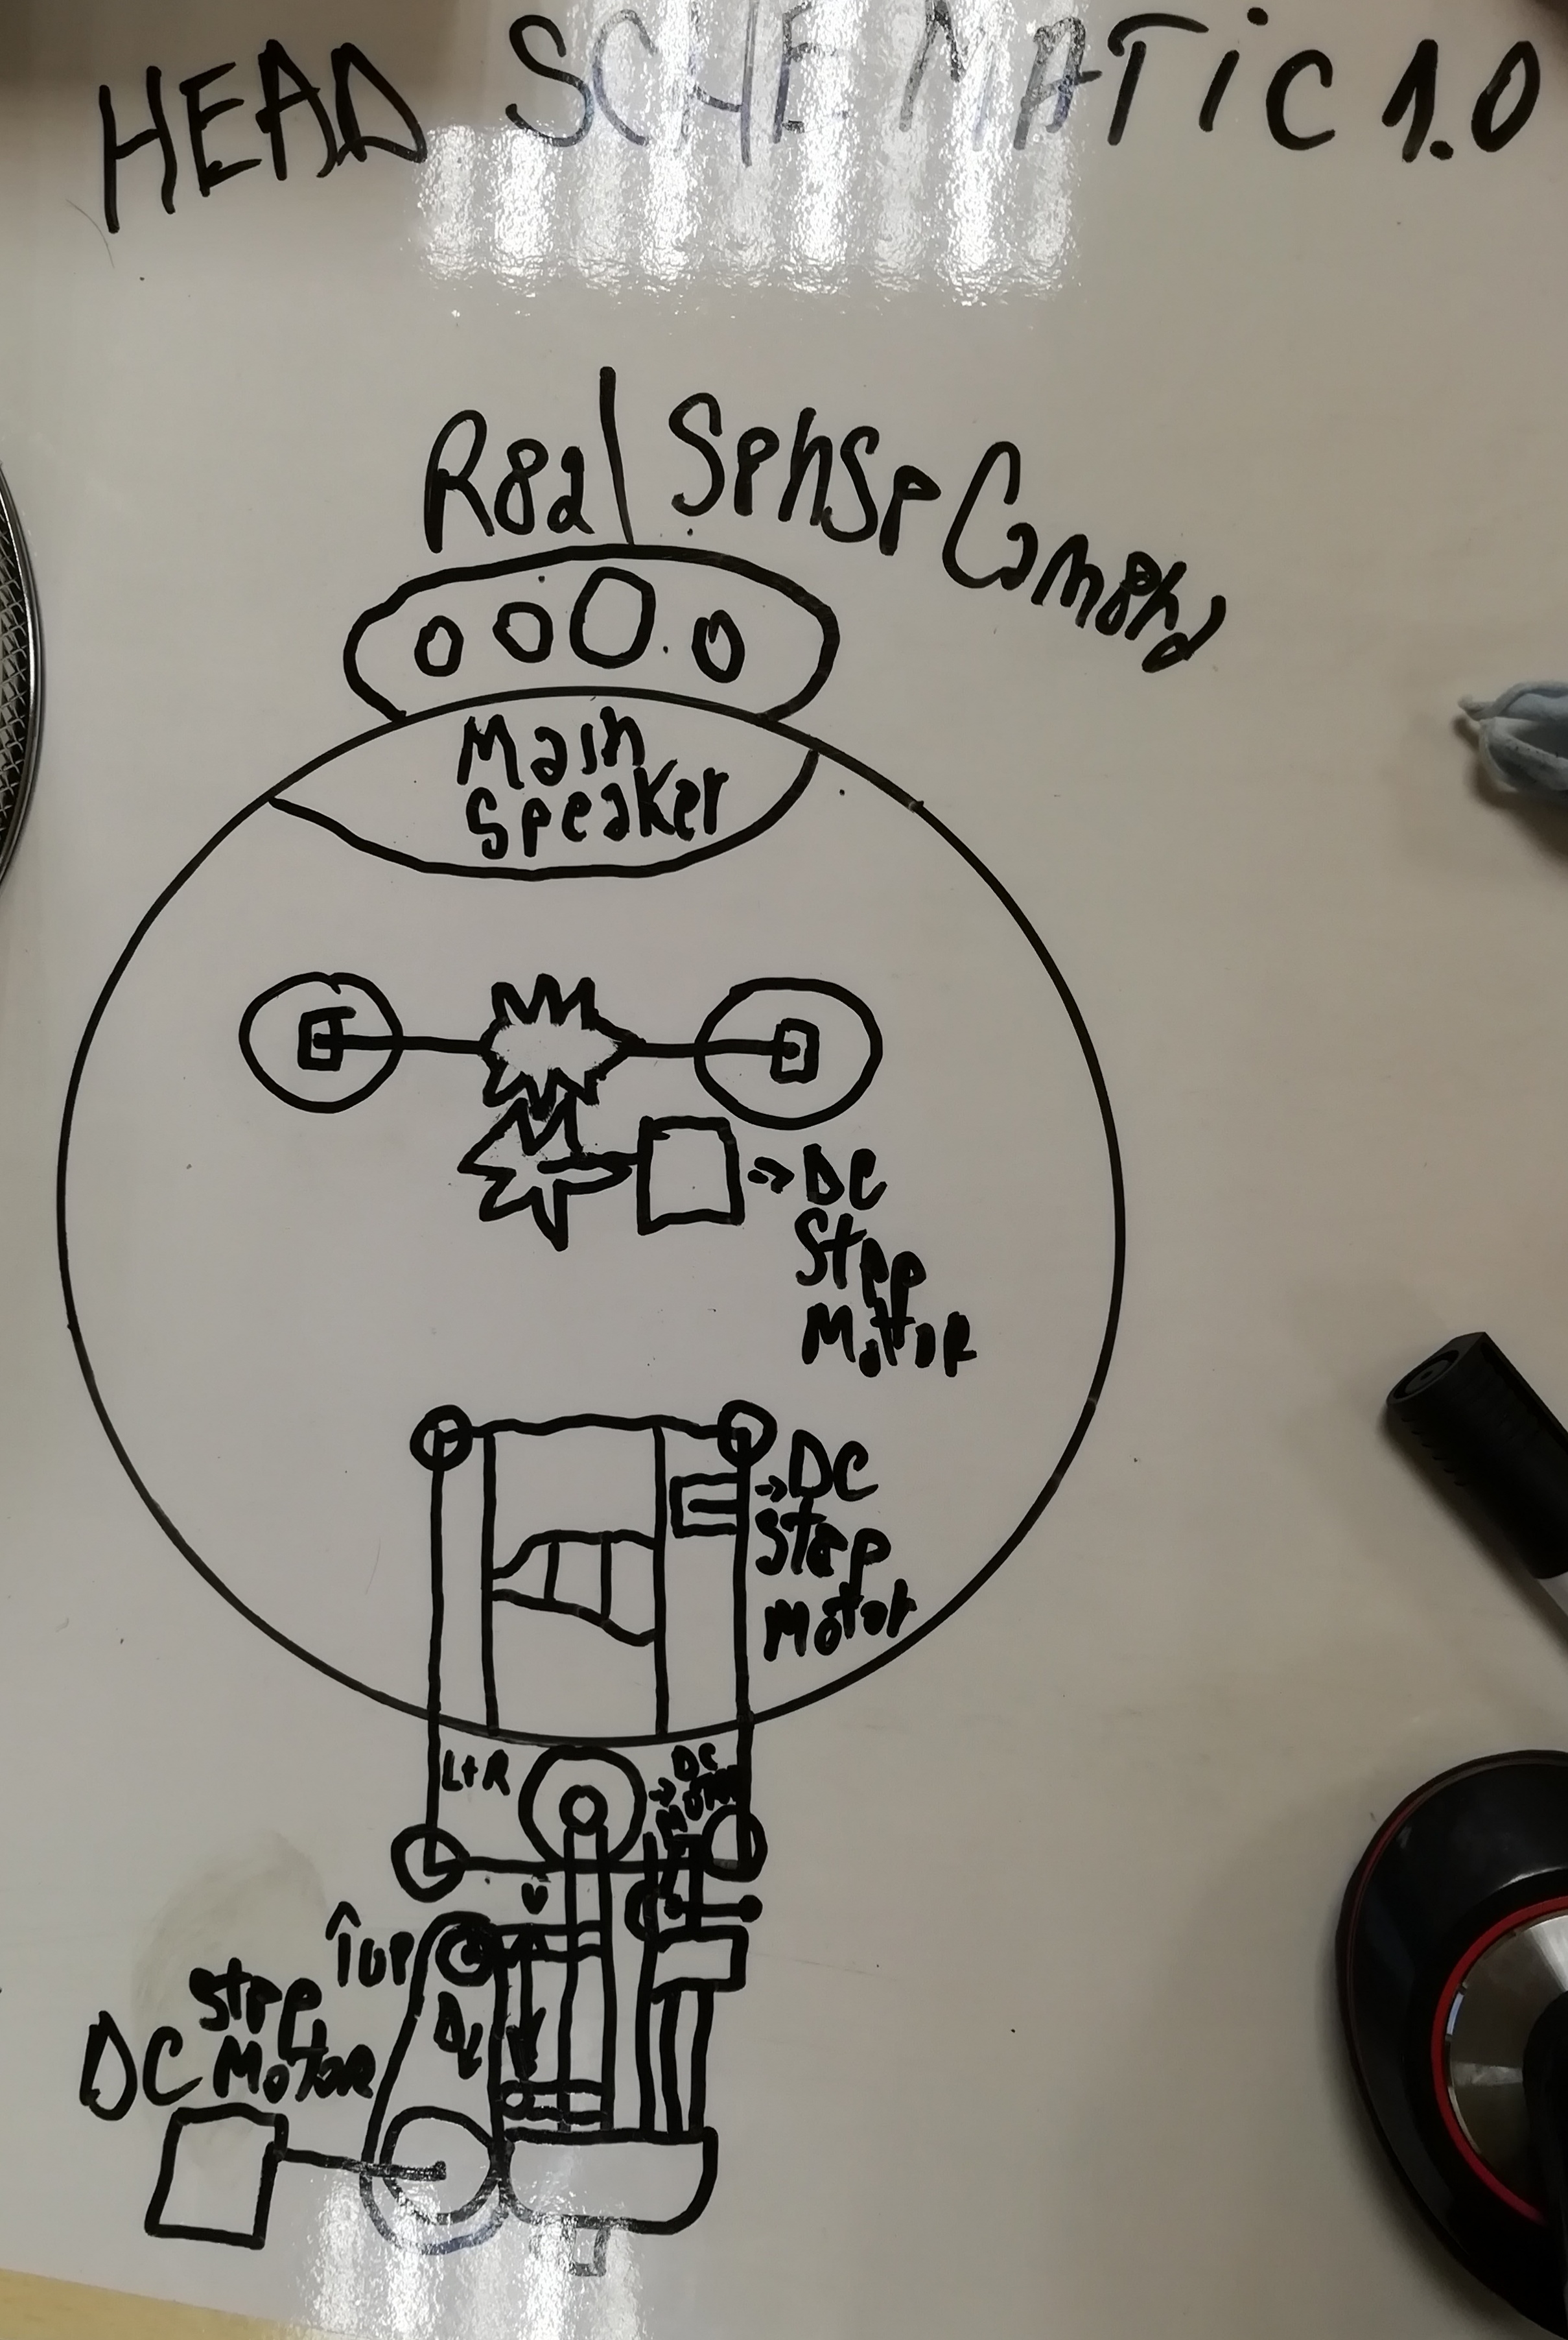 HEAD SCHEMATiC 1.0
Real Sense Camera
Main
Speaker
→ DC
Step
Motor
→ DC
Step
Motor
L+R
→ DC
Motor
↑UP
Step
DC Motor